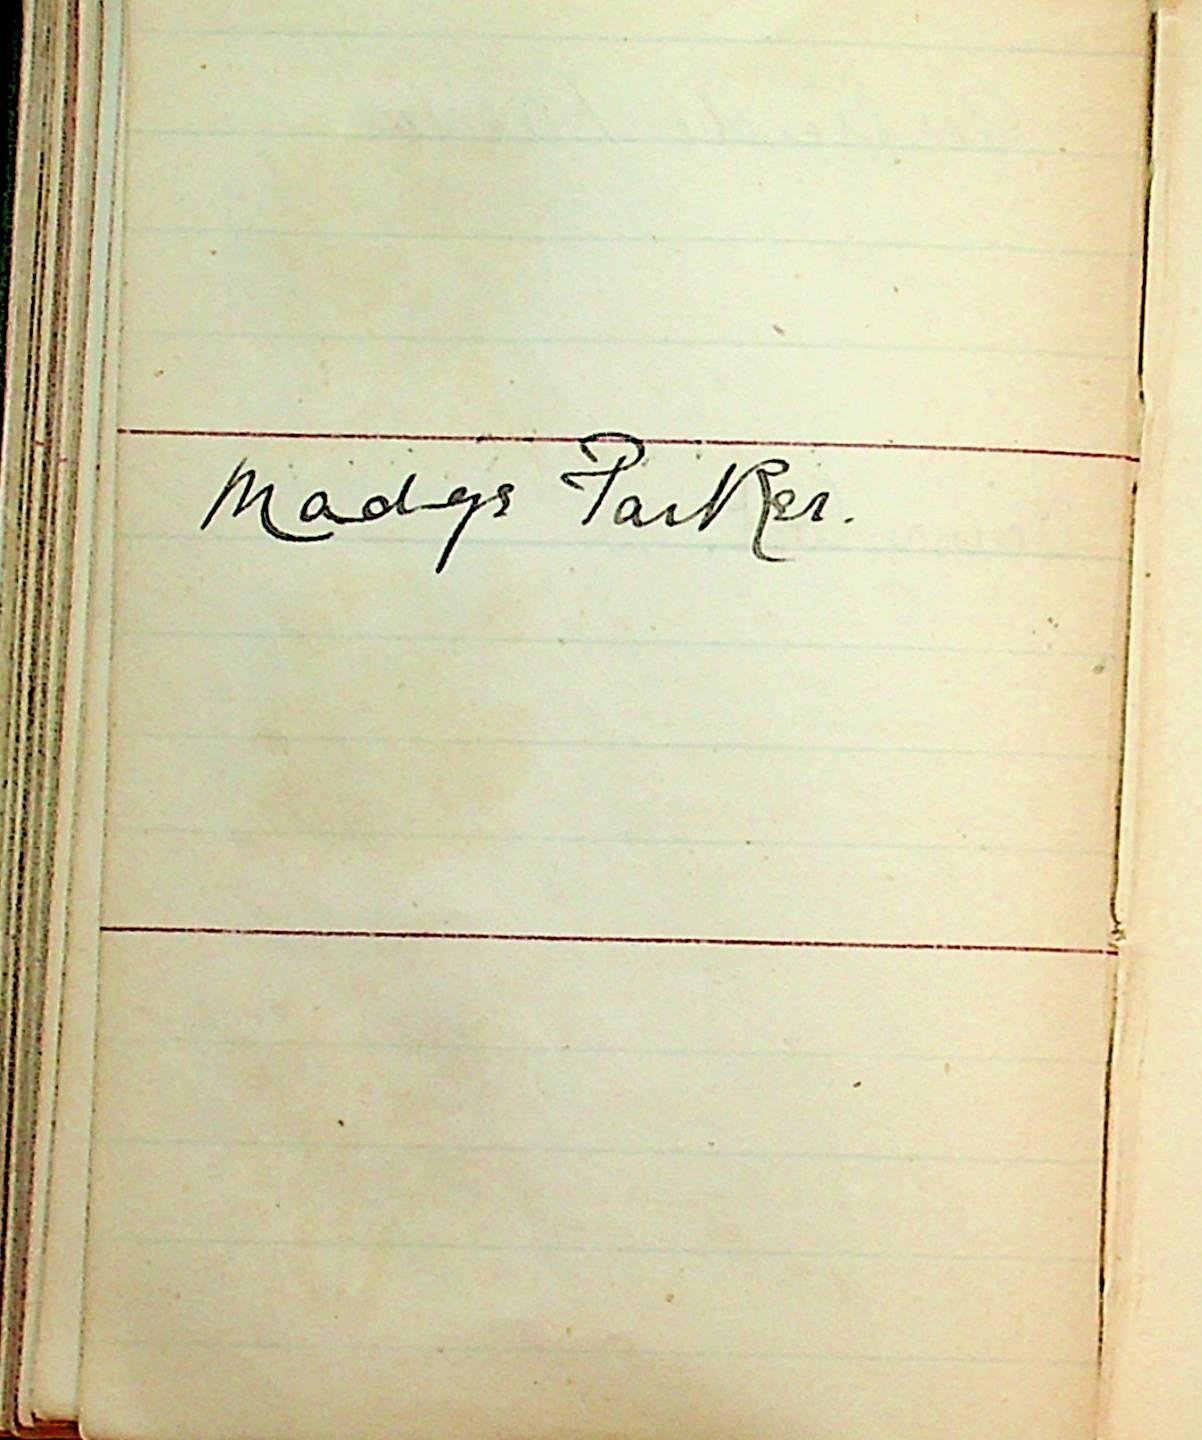 Madge Parker.